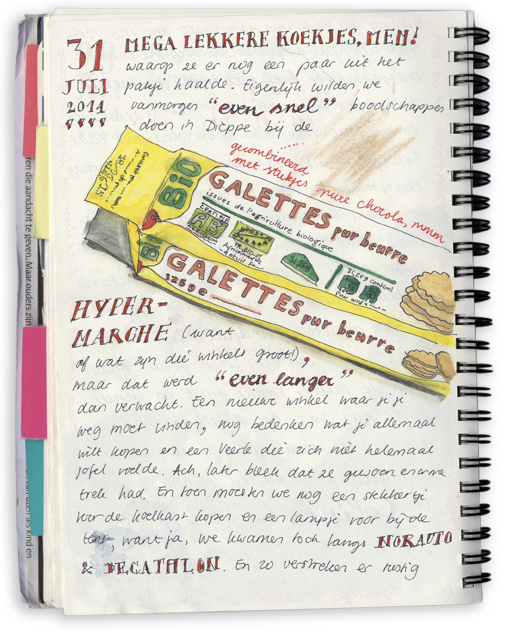 31
JULI
2011
MEGA LEKKERE KOEKJES, MEN!
waarop ze er nog een paar uit het
pakje haalde. Eigenlijk wilden we
vanmorgen "even snel" boodschappen
doen in Dieppe bij de
gecombineerd
met stukjes pure chocola, mmm
BiO
GALETTES pur beurre
issues de l'agriculture biologique
AB
BiO
GALETTES pur beurre
325g e
HYPER-
MARCHÉ (want
of wat zijn dié winkels groot!),
maar dat werd "even langer"
dan verwacht. Een nieuwe winkel waar je je
weg moet vinden, nog bedenken wat je allemaal
wilt kopen en een Veerle die zich niet helemaal
jofel voelde. Ach, later bleek dat ze gewoon enorme
trek had. En toen moesten we nog een stekkertje
voor de koelkast kopen en een lampje voor bij de
tent, want ja, we kwamen toch langs NORAUTO
& DECATHLON. En zo verstreken er rustig
ren die aandacht te geven. Maar ouders zijn